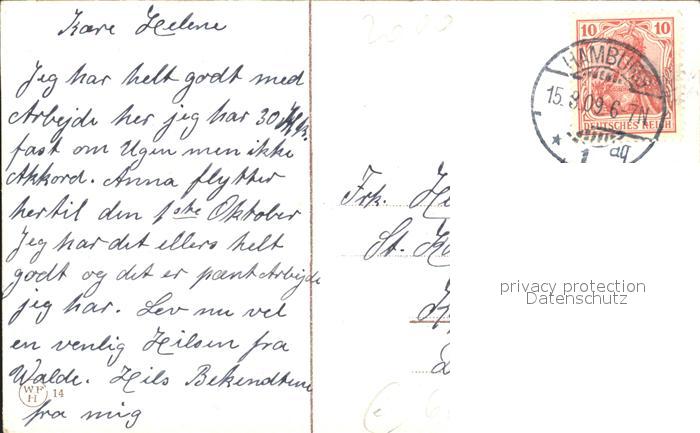 Kære Helene
Jeg har helt godt med
Arbejde her jeg har 30 Mk.
fast om Ugen men ikke
Akkord. Anna flytter
hertil den 1ste Oktober
Jeg har det ellers helt
godt og det er pænt Arbejde
jeg har. Lev nu vel
en venlig Hilsen fra
Walde. Hils Bekendtene
fra mig
WFS
H
14
10 10
HAMBURG
15.9.09.6-7N.
DEUTSCHES REICH
* 1
Frk. He
St. Ko
privacy protection
Datenschutz